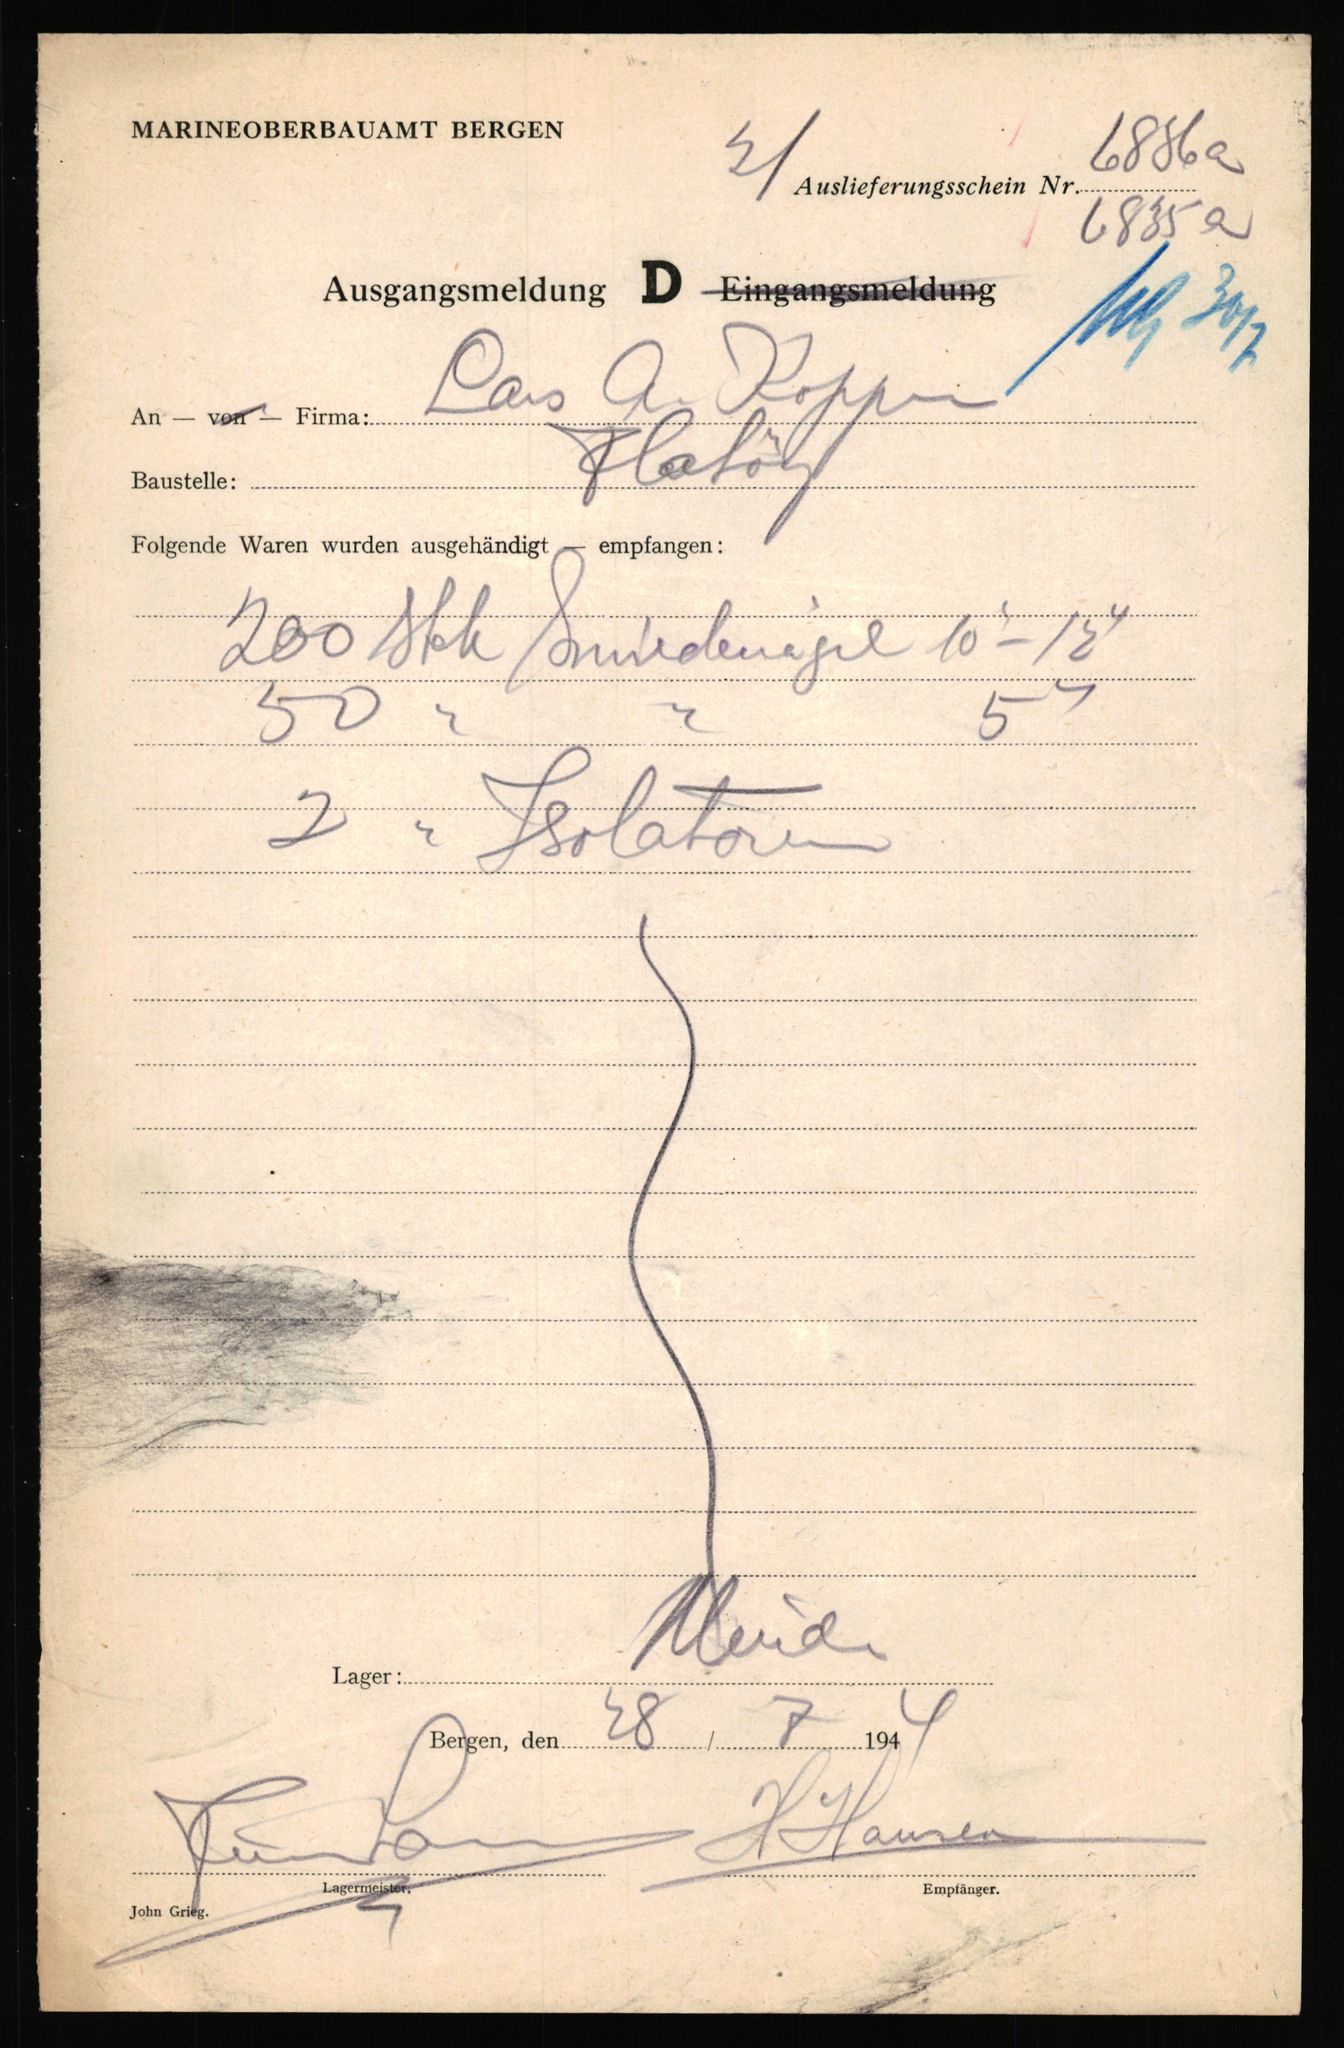 MARINEOBERBAUAMT BERGEN
21 Auslieferungsschein Nr. 6836a
6835a
Ausgangsmeldung D Eingangsmeldung
30/7
An — von — Firma: Lars A. Koppen
Baustelle: Flatöy
Folgende Waren wurden ausgehändigt — empfangen:
200 Stk Smiedenägel 10" - 12"
50 " " 5"
2 " Isolatoren
Lager:
Bergen, den 28 / 7 1944
H Hansen
Lagermeister. Empfänger.
John Grieg.